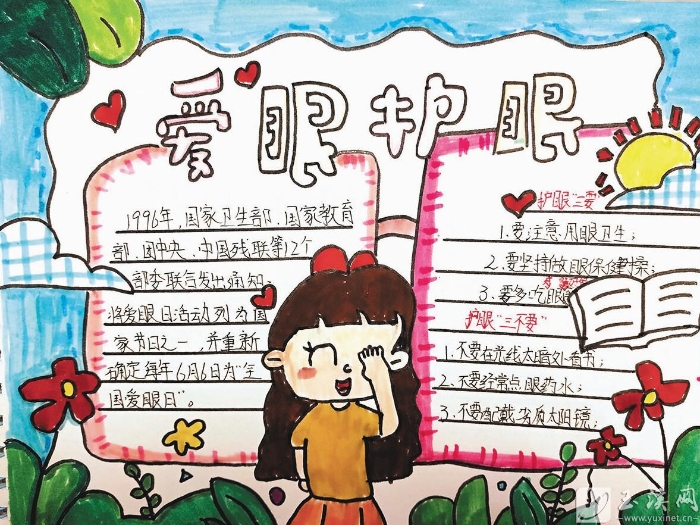 爱眼护眼
1996年,国家卫生部、国家教育
部、团中央、中国残联等12个
部委联合发出通知,
将爱眼日活动列为国
家节日之一,并重新
确定每年6月6日为“全
国爱眼日”。
护眼“三要”
1.要注意用眼卫生;
2.要坚持做眼保健操;
3.要多吃
护眼“三不要”
1.不要在光线太暗处看书;
2.不要经常点眼药水;
3.不要配戴劣质太阳镜;
玉溪网
www.yuxinet.cn